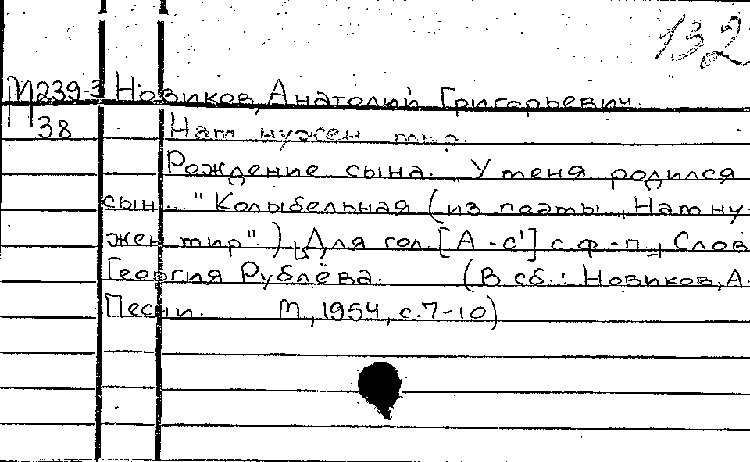 132
М239-3 Новиков, Анатолий Григорьевич.
П38 Нам нужен мир.
Рождение сына. У меня родился
сын.. "Колыбельная (из поэмы "Нам ну-
жен мир"). Для гол. [А-с'] с ф-п., Слова
Георгия Рублёва. (В сб.: Новиков, А.
Песни. М., 1954, с. 7-10)